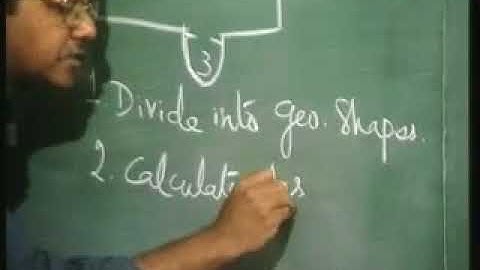 3
1. Divide into geo. shapes.
2. Calculati